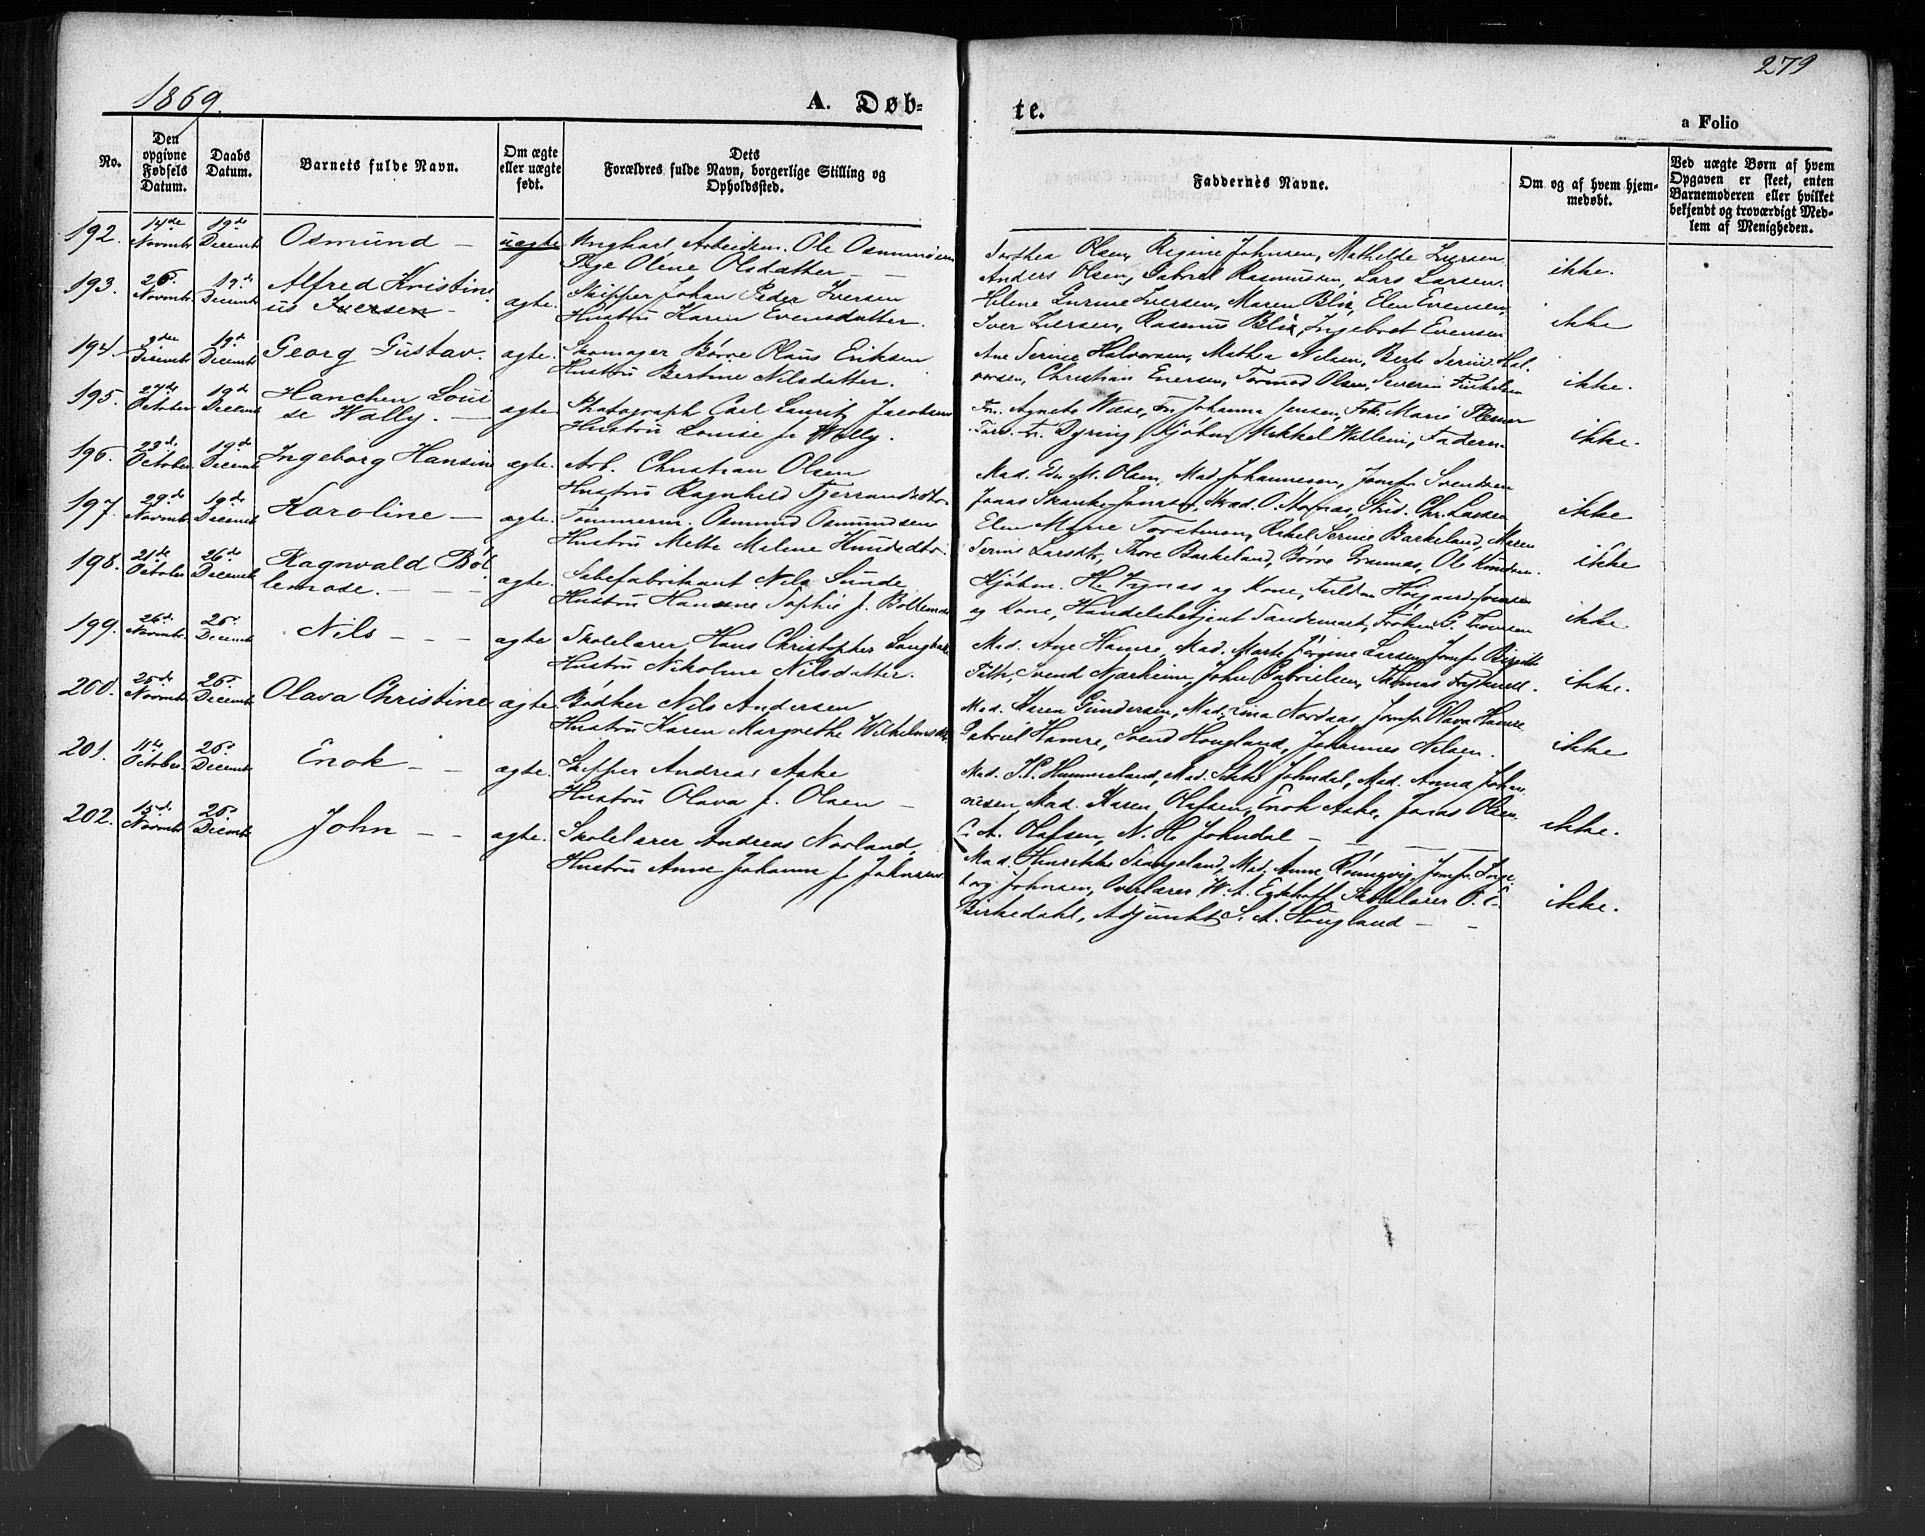 1869.
A. Døb-
te.
279
a Folio
No.
Den opgivne Fødsels Datum.
Daabs Datum.
Barnets fulde Navn.
Om ægte eller uægte født.
Dets Forældres fulde Navn, borgerlige Stilling og Opholdssted.
Faddernes Navne.
Om og af hvem hjemmedøbt.
Ved uægte Børn af hvem Opgaven er skeet, enten Barnemoderen eller hvilket bekjendt og troværdigt Medlem af Menigheden.
192. 14de Novmbr 19de Decembr Osmund — uægte Ungkarl Arbeidsm. Ole Osmundsen
Pige Olene Olsdatter — —
Dorthea Olsen, Regine Johnsen, Mathilde Iversen
Anders Olsen, Gabriel Rasmussen, Lars Larsen.
ikke.
193. 26 Novmbr 19de Decembr Alfred Kristin
us Iversen — ægte. Skipper Johan Peder Iversen
Hustru Karen Evensdatter.
Helene Lurine Iversen, Maren Blix, Elen Evensen,
Iver Iversen, Rasmus Blix, Ingebret Evensen
ikke
194. Decembr 19de Decembr Georg Gustav. ægte. Skomager Børre Olaus Eriksen
Hustru Bertine Nilsdatter.
Ane Serine Halvorsen, Mathea Nilsen, Berte Serine Hal-
vorsen, Christian Enersen, Tormod Olsen, Severin
ikke.
195. 27de October 19de Decembr Hanchen Loui
se Wally. — ægte Photograph Carl Lauritz Jacobsen
Hustru Louise f. Wally.
Fru. Agnete Wæse, Fr. Johanna Jensen, Frk. Marie
Fr. Dyring, Kjøbm. Mikkel Willem, Faderen
ikke.
196. 23de October 19de Decembr Ingeborg Hansine ægte. Arb. Christian Olsen
Hustru Ragnhild
Mad. M. Olsen, Mad. Johannesen, Jomfr. Svendsen
Jonas Skanke Jonasen, Chr. Larsen
ikke
197. 29de Novmbr 19de Decembr Karoline — ægte. Tømmerm. Osmund Osmundsen
Hustru Mette Malene Knudsdtr.
Elen Marie Torstensen, Rakel Serine Barkeland, Maren
Serine Larsdtr, Thore Barkeland, Børre Grannæs, Ole Knudsen
ikke
198. 21de October 26de Decembr Ragnvald Bøl
lemose. — — ægte. Sæbefabrikant Nils Sunde
Hustru Hansine Sophie f. Bøllemose
Kjøbm. H. og Kone, Høigaard Jonsen
og Kone, Handelsbetjent Sandemart, Frøken G. Thomsen
ikke
199. 26de Novmbr 26 Decembr Nils — — — ægte Skolelærer Hans Christopher
Hustru Nikoline Nilsdatter.
Mad. Ane Hamre, Mad. Marte Jørgine Larsen, Jomfr. Birgitte
Svend Njærheim, John Gabrielsen, Thomas
ikke.
200. 25de Novmbr 26 Decembr Olava Christine ægte. Bødker Nils Andersen
Hustru Karen Margrethe Wilhelmsdtr.
Mad. Karen Gundersen, Mad. Lina Nordaas, Jomfr. Olava Hamre
Gabriel Hamre, Svend Hougland, Johannes Nilsen.
ikke
201. 11de October 26 Decembr Enok — — ægte. Skipper Andreas Aske
Hustru Olava f. Olsen —
Mad. Hummeland, Mad. Johndal, Mad. Anna Johan-
nesen, Mad. Karen Olafsen, Enok Aske, Jonas Olsen,
A. Olafsen, N. H. Johndal — — — —
ikke.
202. 15de Novmbr 26 Decembr John — — ægte. Skolelærer Andreas Norland,
Hustru Anne Johanne f. Johnsen
Mad. Henrikke Stangeland, Mad. Anne Rønnevig, Jomfr. Inge-
borg Johnsen, Overlærer W. A. Eckhoff, Skolelærer
Birkedahl, Adjunkt S. A. Hougland — —
ikke.